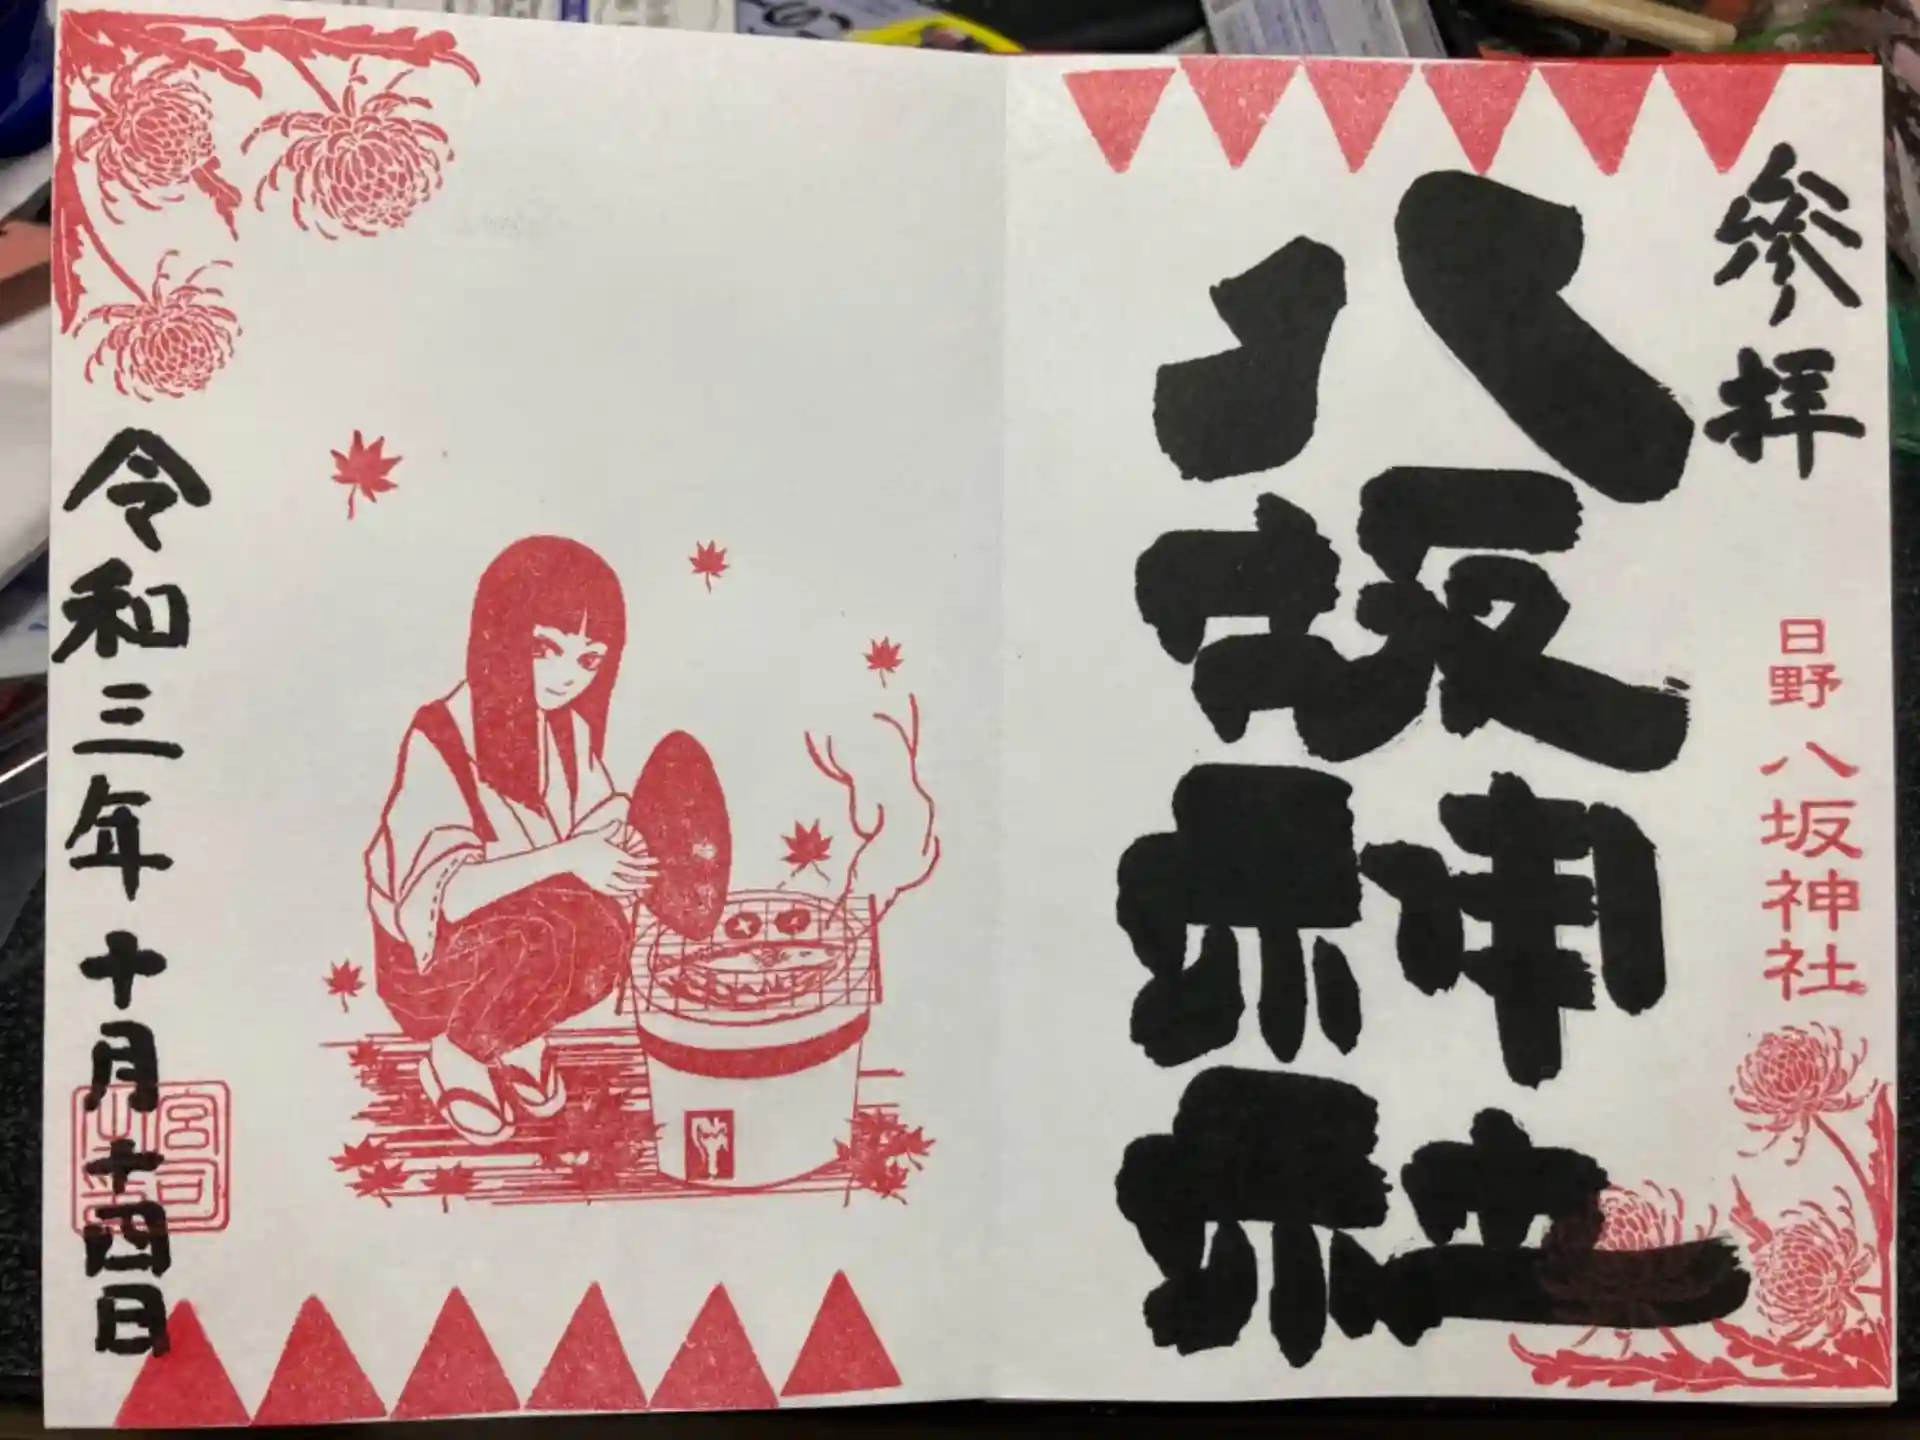 參拝
日野
八坂神社
八坂神社
令和三年十月十四日
宮司